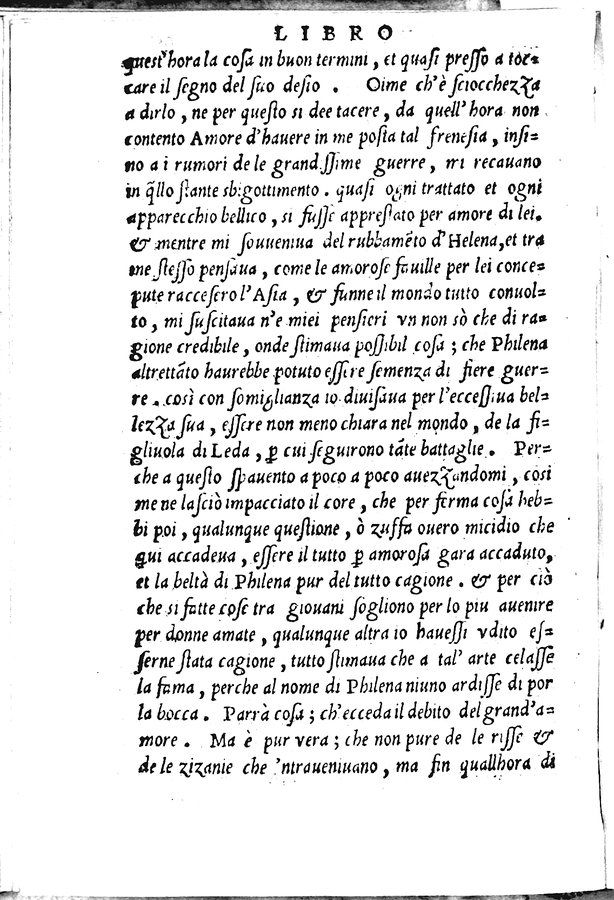 LIBRO
quest'hora la cosa in buon termini, et quasi presso a toc-
care il segno del suo desio. Oime ch'è sciocchezza
a dirlo, ne per questo si dee tacere, da quell'hora non
contento Amore d'hauere in me posta tal frenesia, insi-
no a i rumori de le grandissime guerre, mi recauano
in q̃llo stante sbigottimento. quasi ogni trattato et ogni
apparecchio bellico, si fusse apprestato per amore di lei.
& mentre mi souueniua del rubbamẽto d'Helena, et tra
me stesso pensaua, come le amorose fauille per lei conce-
pute raccesero l'Asia, & funne il mondo tutto conuol-
to, mi suscitaua n'e miei pensieri vn non sò che di ra-
gione credibile, onde stimaua possibil cosa; che Philena
altrettãto haurebbe potuto essere semenza di fiere guer-
re. così con somiglianza io diuisaua per l'eccessiua bel-
lezza sua, essere non meno chiara nel mondo, de la fi-
gliuola di Leda, ꝑ cui seguirono tãte battaglie. Per-
che a questo spauento a poco a poco auezzandomi, cosi
me ne lasciò impacciato il core, che per ferma cosa heb-
bi poi, qualunque questione, ò zuffa ouero micidio che
qui accadeua, essere il tutto ꝑ amorosa gara accaduto,
et la beltà di Philena pur del tutto cagione. & per ciò
che si fatte cose tra giouani sogliono per lo piu auenire
per donne amate, qualunque altra io hauessi vdito es-
serne stata cagione, tutto stimaua che a tal' arte celasse
la fama, perche al nome di Philena niuno ardisse di por
la bocca. Parrà cosa; ch'ecceda il debito del grand'a-
more. Ma è pur vera; che non pure de le risse &
de le zizanie che 'ntraueniuano, ma fin quallhora di